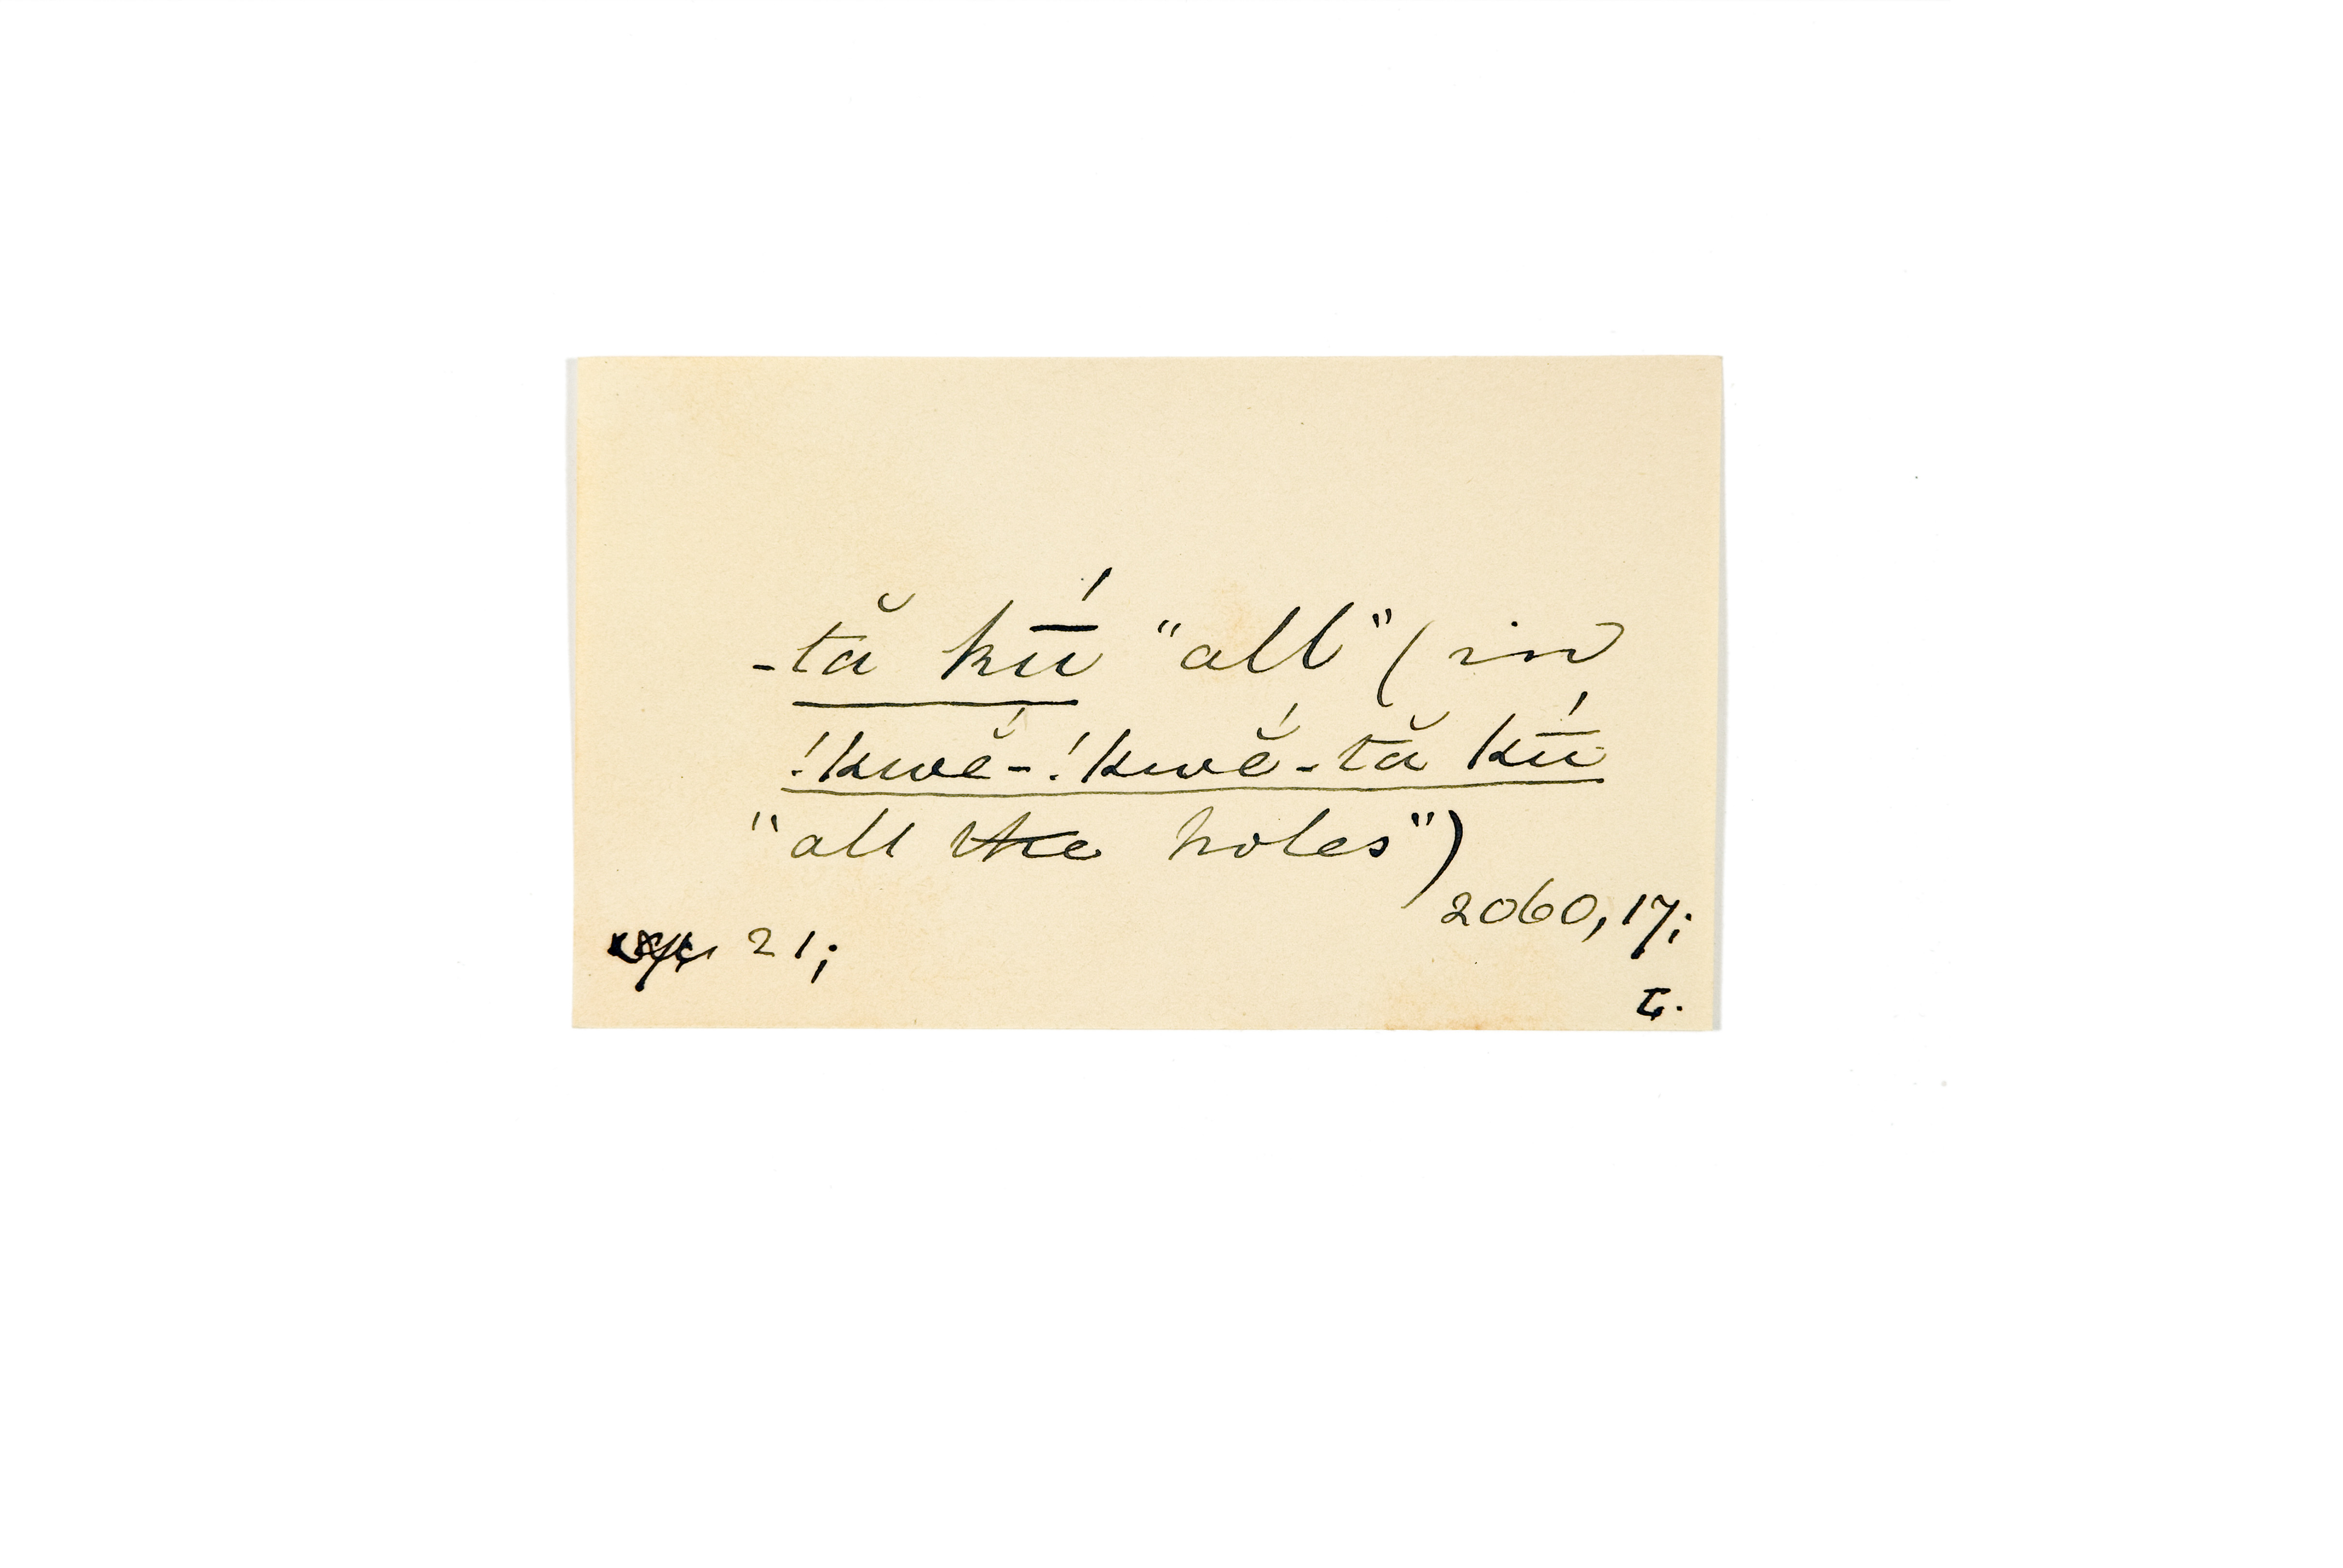 -tă kū́ "all" (in
!kwĕ́-!kwĕ́-tă kū́
"all the holes")
2060, 17;
21;
L.